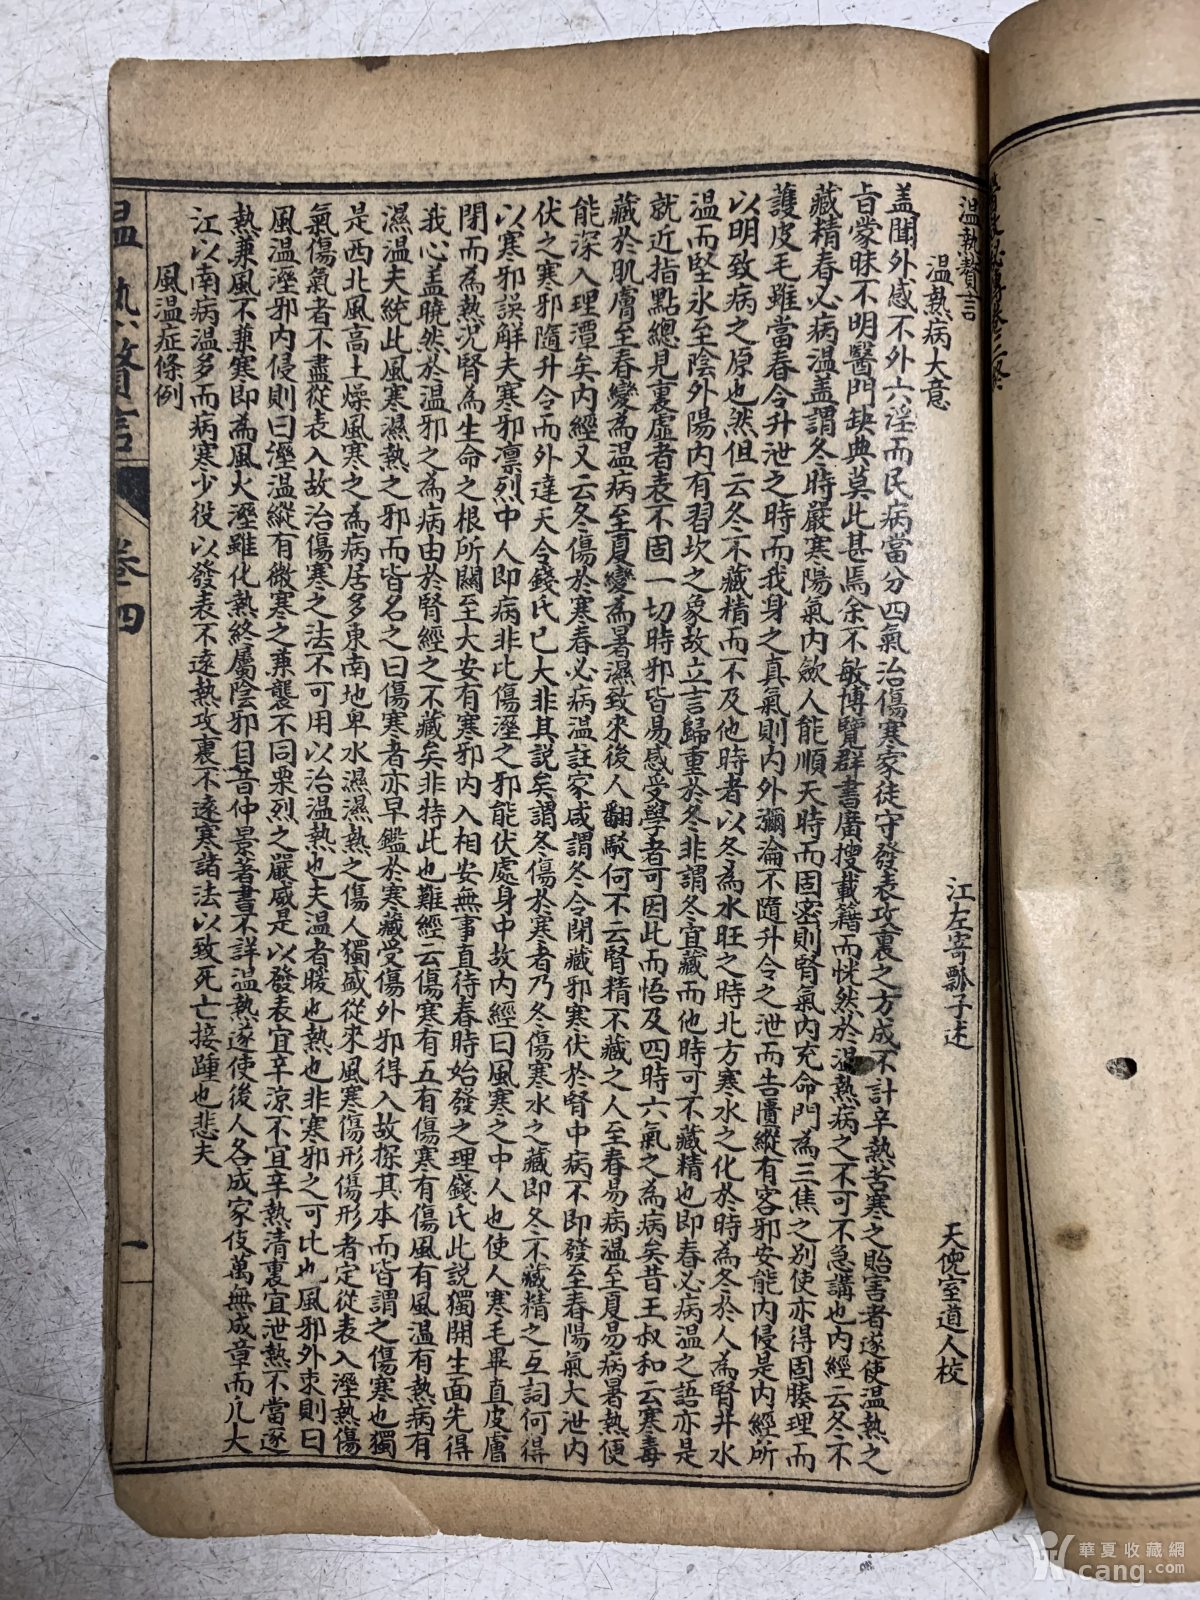 溫熱贅言
溫熱病大意
江左寄瓢子述
天倪室道人校
盖聞外感不外六淫而民病當分四氣治傷寒家徒守發表攻裏之方成不計辛熱苦寒之貽害者遂使溫熱之
旨蒙昧不明醫門缺典莫此甚焉余不敏博覽群書廣搜載籍而恍然於溫熱病之不可不急講也內經云冬不
藏精春必病溫盖謂冬時嚴寒陽氣內歛人能順天時而固密則腎氣內充命門為三焦之別使亦得固腠理而
護皮毛雖當春令升泄之時而我身之真氣則內外瀰淪不隨升令之泄而告匱縱有客邪安能內侵是內經所
以明致病之原也然但云冬不藏精而不及他時者以冬為水旺之時北方寒水之化於時為冬於人為腎井水
溫而堅氷至陰外陽內有習坎之象故立言歸重於冬非謂冬宜藏而他時可不藏精也即春必病溫之語亦是
就近指點總見裏虛者表不固一切時邪皆易感受學者可因此而悟及四時六氣之為病矣昔王叔和云寒毒
藏於肌膚至春變為溫病至夏變為暑濕致來後人翻駁何不云腎精不藏之人至春易病溫至夏易病暑熱便
能深入理潭矣內經又云冬傷於寒春必病溫註家咸謂冬令閉藏邪寒伏於腎中病不即發至春陽氣大泄內
伏之寒邪隨升令而外達天令錢氏已大非其説矣謂冬傷於寒者乃冬傷寒水之藏即冬不藏精之互詞何得
以寒邪誤解夫寒邪凛烈中人即病非比傷溼之邪能伏處身中故內經曰風寒之中人也使人寒毛畢直皮膚
閉而為熱况腎為生命之根所關至大安有寒邪內入相安無事直待春時始發之理錢氏此説獨開生面先得
我心盖曉然於溫邪之為病由於腎經之不藏矣非特此也難經云傷寒有五有傷寒有傷風有風溫有熱病有
濕溫夫統此風寒濕熱之邪而皆名之曰傷寒者亦早鑑於寒藏受傷外邪得入故探其本而皆謂之傷寒也獨
是西北風高土燥風寒之為病居多東南地卑水濕濕熱之傷人獨盛從來風寒傷形傷形者定從表入溼熱傷
氣傷氣者不盡從表入故治傷寒之法不可用以治溫熱也夫溫者暖也熱也非寒邪之可比也風邪外束則曰
風溫溼邪內侵則曰溼溫縱有微寒之兼襲不同栗烈之嚴威是以發表宜辛涼不宜辛熱清裏宜泄熱不當逐
熱兼風不兼寒即為風火溼雖化熱終屬陰邪自昔仲景著書不詳溫熱遂使後人各成家伎萬無成章而凢大
江以南病溫多而病寒少役以發表不遠熱攻裏不遠寒諸法以致死亡接踵也悲夫
風溫症條例
溫熱贅言
卷四
一
華夏收藏網
cang.com